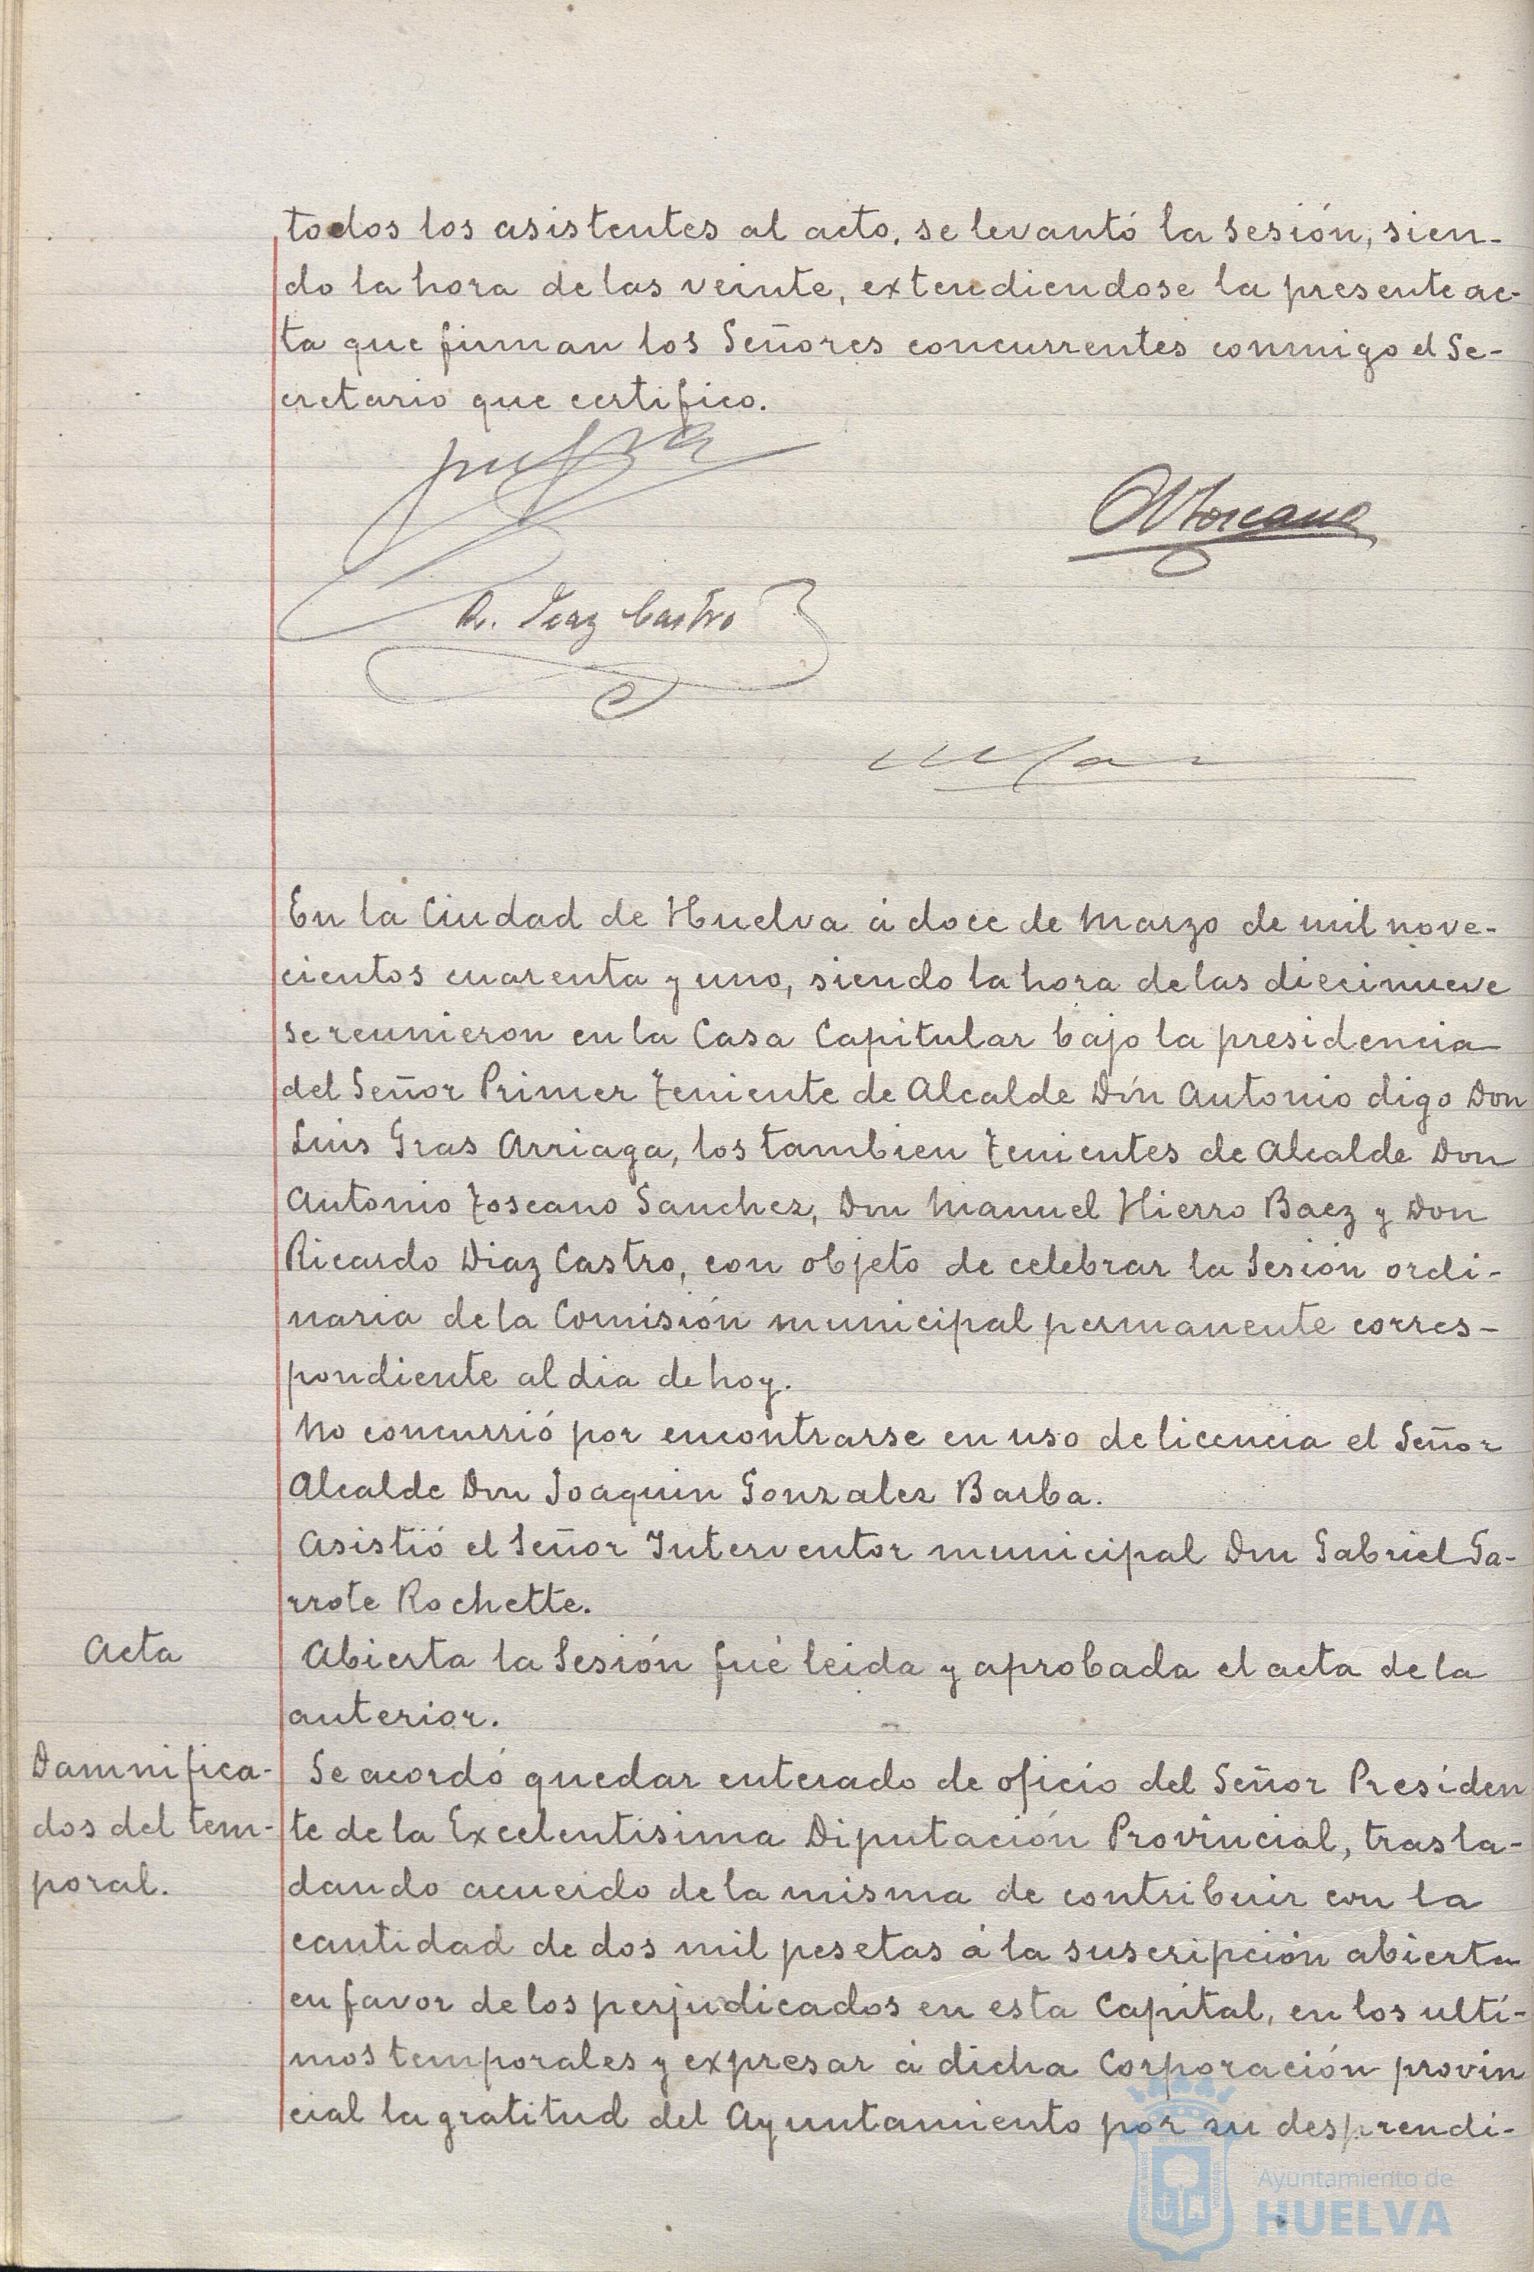 todos los asistentes al acto, se levantó la sesión, sien-
do la hora de las veinte, extendiendose la presente ac-
ta que firman los Señores concurrentes conmigo el Se-
cretario que certifico.
A Toscano
R. Diaz Castro
En la Ciudad de Huelva á doce de Marzo de mil nove-
cientos cuarenta y uno, siendo la hora de las diecinueve
se reunieron en la Casa Capitular bajo la presidencia
del Señor Primer Teniente de Alcalde Don Antonio digo Don
Luis Gras Arriaga, los tambien Tenientes de Alcalde Don
Antonio Toscano Sanchez, Don Manuel Hierro Baez y Don
Ricardo Diaz Castro, con objeto de celebrar la Sesión ordi-
naria de la Comisión municipal permanente corres-
pondiente al dia de hoy.
No concurrió por encontrarse en uso de licencia el Señor
Alcalde Don Joaquin Gonzalez Barba.
Asistió el Señor Interventor municipal Don Gabriel Ga-
rrote Rochette.
Acta
Abierta la Sesión fué leida y aprobada el acta de la
anterior.
Damnifica-
dos del tem-
poral.
Se acordó quedar enterado de oficio del Señor Presiden
te de la Excelentisima Diputación Provincial, trasla-
dando acuerdo de la misma de contribuir con la
cantidad de dos mil pesetas á la suscripción abierta
en favor de los perjudicados en esta Capital, en los ulti-
mos temporales y expresar á dicha Corporación provin
cial la gratitud del Ayuntamiento por su desprendi-
Ayuntamiento de
HUELVA